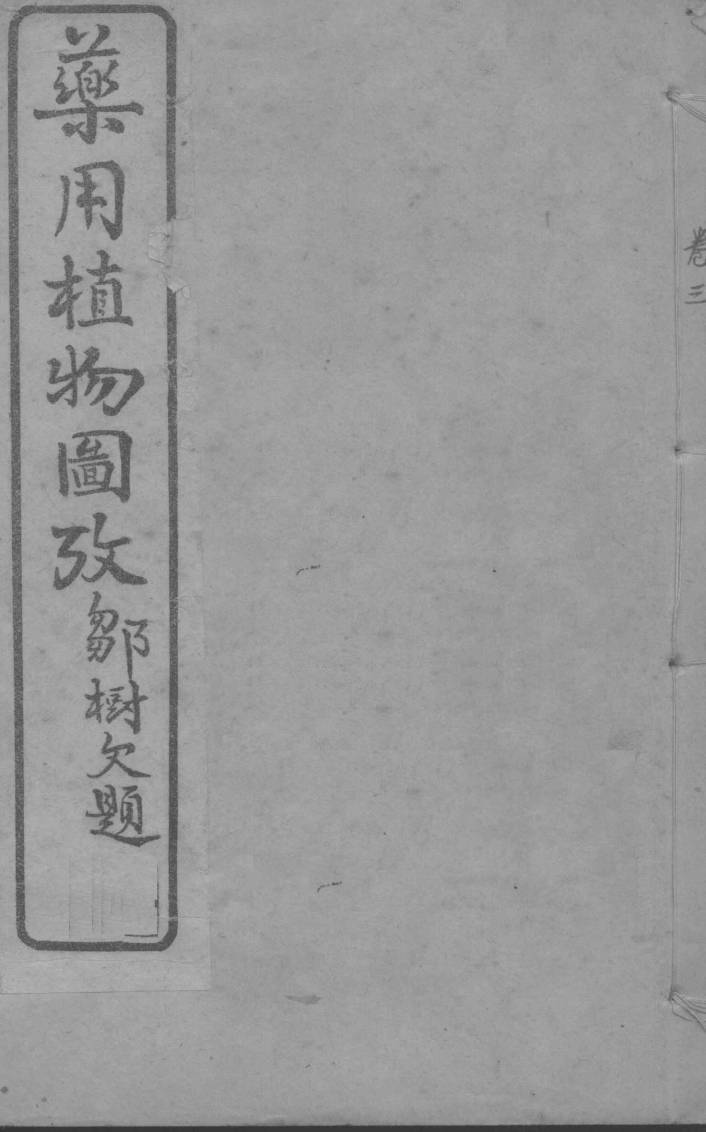 卷三
藥用植物圖攷
鄒樹文題